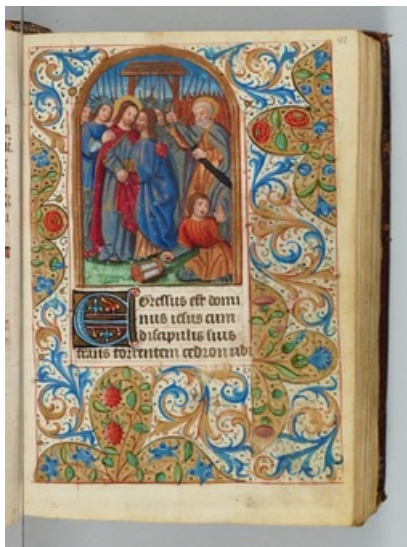 EGressus est domi
nus iesus cum
discipulis suis
trans torrentem cedron ubi